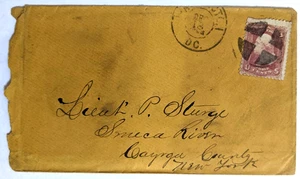 DC.
Lieut. P. Sturge
Seneca River
Cayuga County
New York